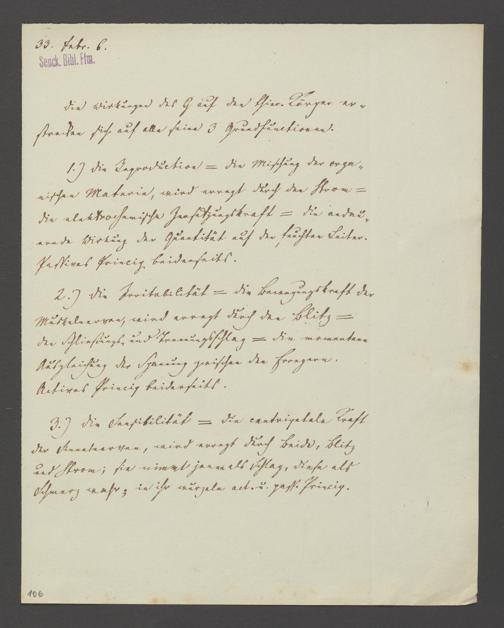 33. Febr. 6.
Senck. Bibl. Ffm.
Die Wirkungen des G auf den thier. Körper er-
strecken sich auf alle seine 3 Grundfunctionen.
1.) Die Reproduction = die Mischung der orga-
nischen Materie, wird erregt durch den Strom =
die elektrochemische Zersetzungskraft = die
Wirkung der Quantität auf der feuchten Leiter.
Passives Princip beiderseits.
2.) Die Irritabilität = die Bewegungskraft der
Muskelnerven, wird erregt durch den Blitz =
den Schließungs und Trennungsschlag = die momentane
Ausgleichung der Spannung zwischen den Erregern.
Actives Princip beiderseits.
3.) Die Sensibilität = die centripetale Kraft
der Sinnesnerven, wird erregt durch beide, Blitz
und Strom; sie nimmt jenen als Schlag, diesen als
Schmerz wahr; in ihr wurzeln act. u. pass. Princip.
106